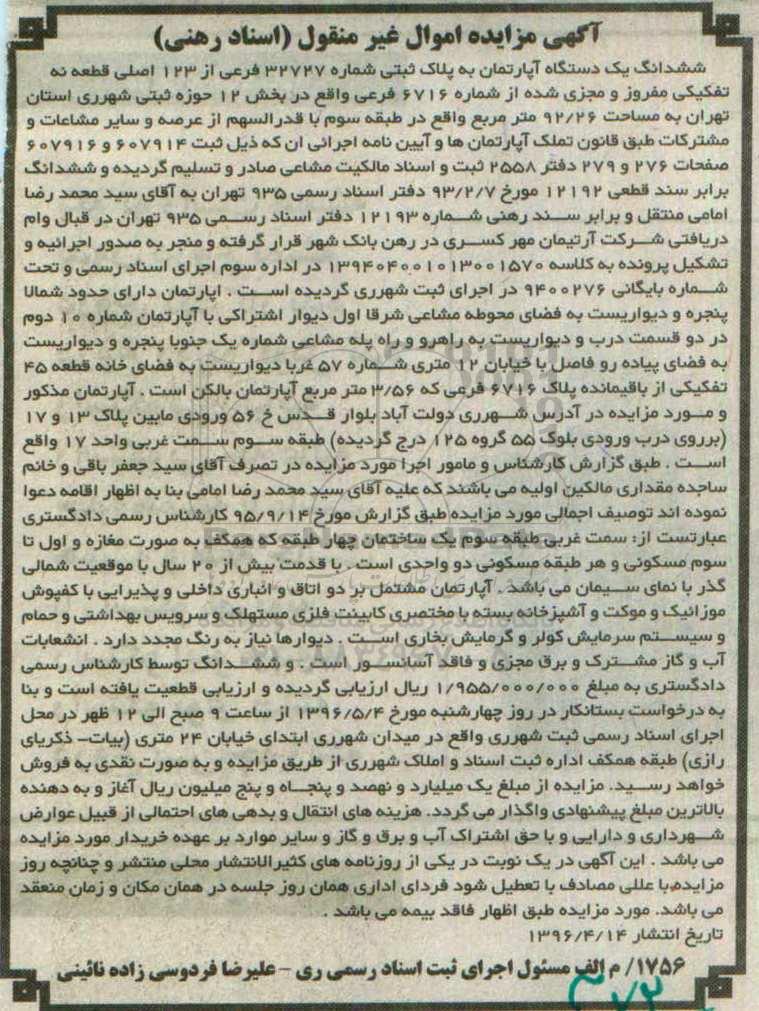 آگهی مزایده اموال غیر منقول (اسناد رهنی)
ششدانگ یک دستگاه آپارتمان به پلاک ثبتی شماره ۳۲۷۲۷ فرعی از ۱۲۳ اصلی قطعه نه
تفکیکی مفروز و مجزی شده از شماره ۶۷۱۶ فرعی واقع در بخش ۱۲ حوزه ثبتی شهرری استان
تهران به مساحت ۹۲/۲۶ متر مربع واقع در طبقه سوم با قدرالسهم از عرصه و سایر مشاعات و
مشترکات طبق قانون تملک آپارتمان ها و آیین نامه اجرائی ان که ذیل ثبت ۶۰۷۹۱۴ و ۶۰۷۹۱۶
صفحات ۲۷۶ و ۲۷۹ دفتر ۲۵۵۸ ثبت و اسناد مالکیت مشاعی صادر و تسلیم گردیده و ششدانگ
برابر سند قطعی ۱۲۱۹۲ مورخ ۹۳/۲/۷ دفتر اسناد رسمی ۹۳۵ تهران به آقای سید محمد رضا
امامی منتقل و برابر سند رهنی شماره ۱۲۱۹۳ دفتر اسناد رسمی ۹۳۵ تهران در قبال وام
دریافتی شرکت آرتیمان مهر کسری در رهن بانک شهر قرار گرفته و منجر به صدور اجرائیه و
تشکیل پرونده به کلاسه ۱۳۹۴۰۴۰۰۱۰۱۳۰۰۱۵۷۰ در اداره سوم اجرای اسناد رسمی و تحت
شماره بایگانی ۹۴۰۰۲۷۶ در اجرای ثبت شهرری گردیده است . اپارتمان دارای حدود شمالا
پنجره و دیواریست به فضای محوطه مشاعی شرقا اول دیوار اشتراکی با آپارتمان شماره ۱۰ دوم
در دو قسمت درب و دیواریست به راهرو و راه پله مشاعی شماره یک جنوبا پنجره و دیواریست
به فضای پیاده رو فاصل با خیابان ۱۲ متری شماره ۵۷ غربا دیواریست به فضای خانه قطعه ۴۵
تفکیکی از باقیمانده پلاک ۶۷۱۶ فرعی که ۳/۵۶ متر مربع آپارتمان بالکن است . آپارتمان مذکور
و مورد مزایده در آدرس شهرری دولت آباد بلوار قدس خ ۵۶ ورودی مابین پلاک ۱۳ و ۱۷
(برروی درب ورودی بلوک ۵۵ گروه ۱۲۵ درج گردیده) طبقه سوم سمت غربی واحد ۱۷ واقع
است . طبق گزارش کارشناس و مامور اجرا مورد مزایده در تصرف آقای سید جعفر باقی و خانم
ساجده مقداری مالکین اولیه می باشند که علیه آقای سید محمد رضا امامی بنا به اظهار اقامه دعوا
نموده اند توصیف اجمالی مورد مزایده طبق گزارش مورخ ۹۵/۹/۱۴ کارشناس رسمی دادگستری
عبارتست از: سمت غربی طبقه سوم یک ساختمان چهار طبقه که همکف به صورت مغازه و اول تا
سوم مسکونی و هر طبقه مسکونی دو واحدی است . با قدمت بیش از ۲۰ سال با موقعیت شمالی
گذر با نمای سیمان می باشد . آپارتمان مشتمل بر دو اتاق و انباری داخلی و پذیرایی با کفپوش
موزائیک و موکت و آشپزخانه بسته با مختصری کابینت فلزی مستهلک و سرویس بهداشتی و حمام
و سیستم سرمایش کولر و گرمایش بخاری است . دیوارها نیاز به رنگ مجدد دارد . انشعابات
آب و گاز مشترک و برق مجزی و فاقد آسانسور است . و ششدانگ توسط کارشناس رسمی
دادگستری به مبلغ ۱/۹۵۵/۰۰۰/۰۰۰ ریال ارزیابی گردیده و ارزیابی قطعیت یافته است و بنا
به درخواست بستانکار در روز چهارشنبه مورخ ۱۳۹۶/۵/۴ از ساعت ۹ صبح الی ۱۲ ظهر در محل
اجرای اسناد رسمی ثبت شهرری واقع در میدان شهرری ابتدای خیابان ۲۴ متری (بیات- ذکریای
رازی) طبقه همکف اداره ثبت اسناد و املاک شهرری از طریق مزایده و به صورت نقدی به فروش
خواهد رسید. مزایده از مبلغ یک میلیارد و نهصد و پنجاه و پنج میلیون ریال آغاز و به دهنده
بالاترین مبلغ پیشنهادی واگذار می گردد. هزینه های انتقال و بدهی های احتمالی از قبیل عوارض
شهرداری و دارایی و با حق اشتراک آب و برق و گاز و سایر موارد بر عهده خریدار مورد مزایده
می باشد . این آگهی در یک نوبت در یکی از روزنامه های کثیرالانتشار محلی منتشر و چنانچه روز
مزایده با عللی مصادف با تعطیل شود فردای اداری همان روز جلسه در همان مکان و زمان منعقد
می باشد. مورد مزایده طبق اظهار فاقد بیمه می باشد .
تاریخ انتشار ۱۳۹۶/۴/۱۴
۱۷۵۶/ م الف مسئول اجرای ثبت اسناد رسمی ری - علیرضا فردوسی زاده نائینی
۳۷۳